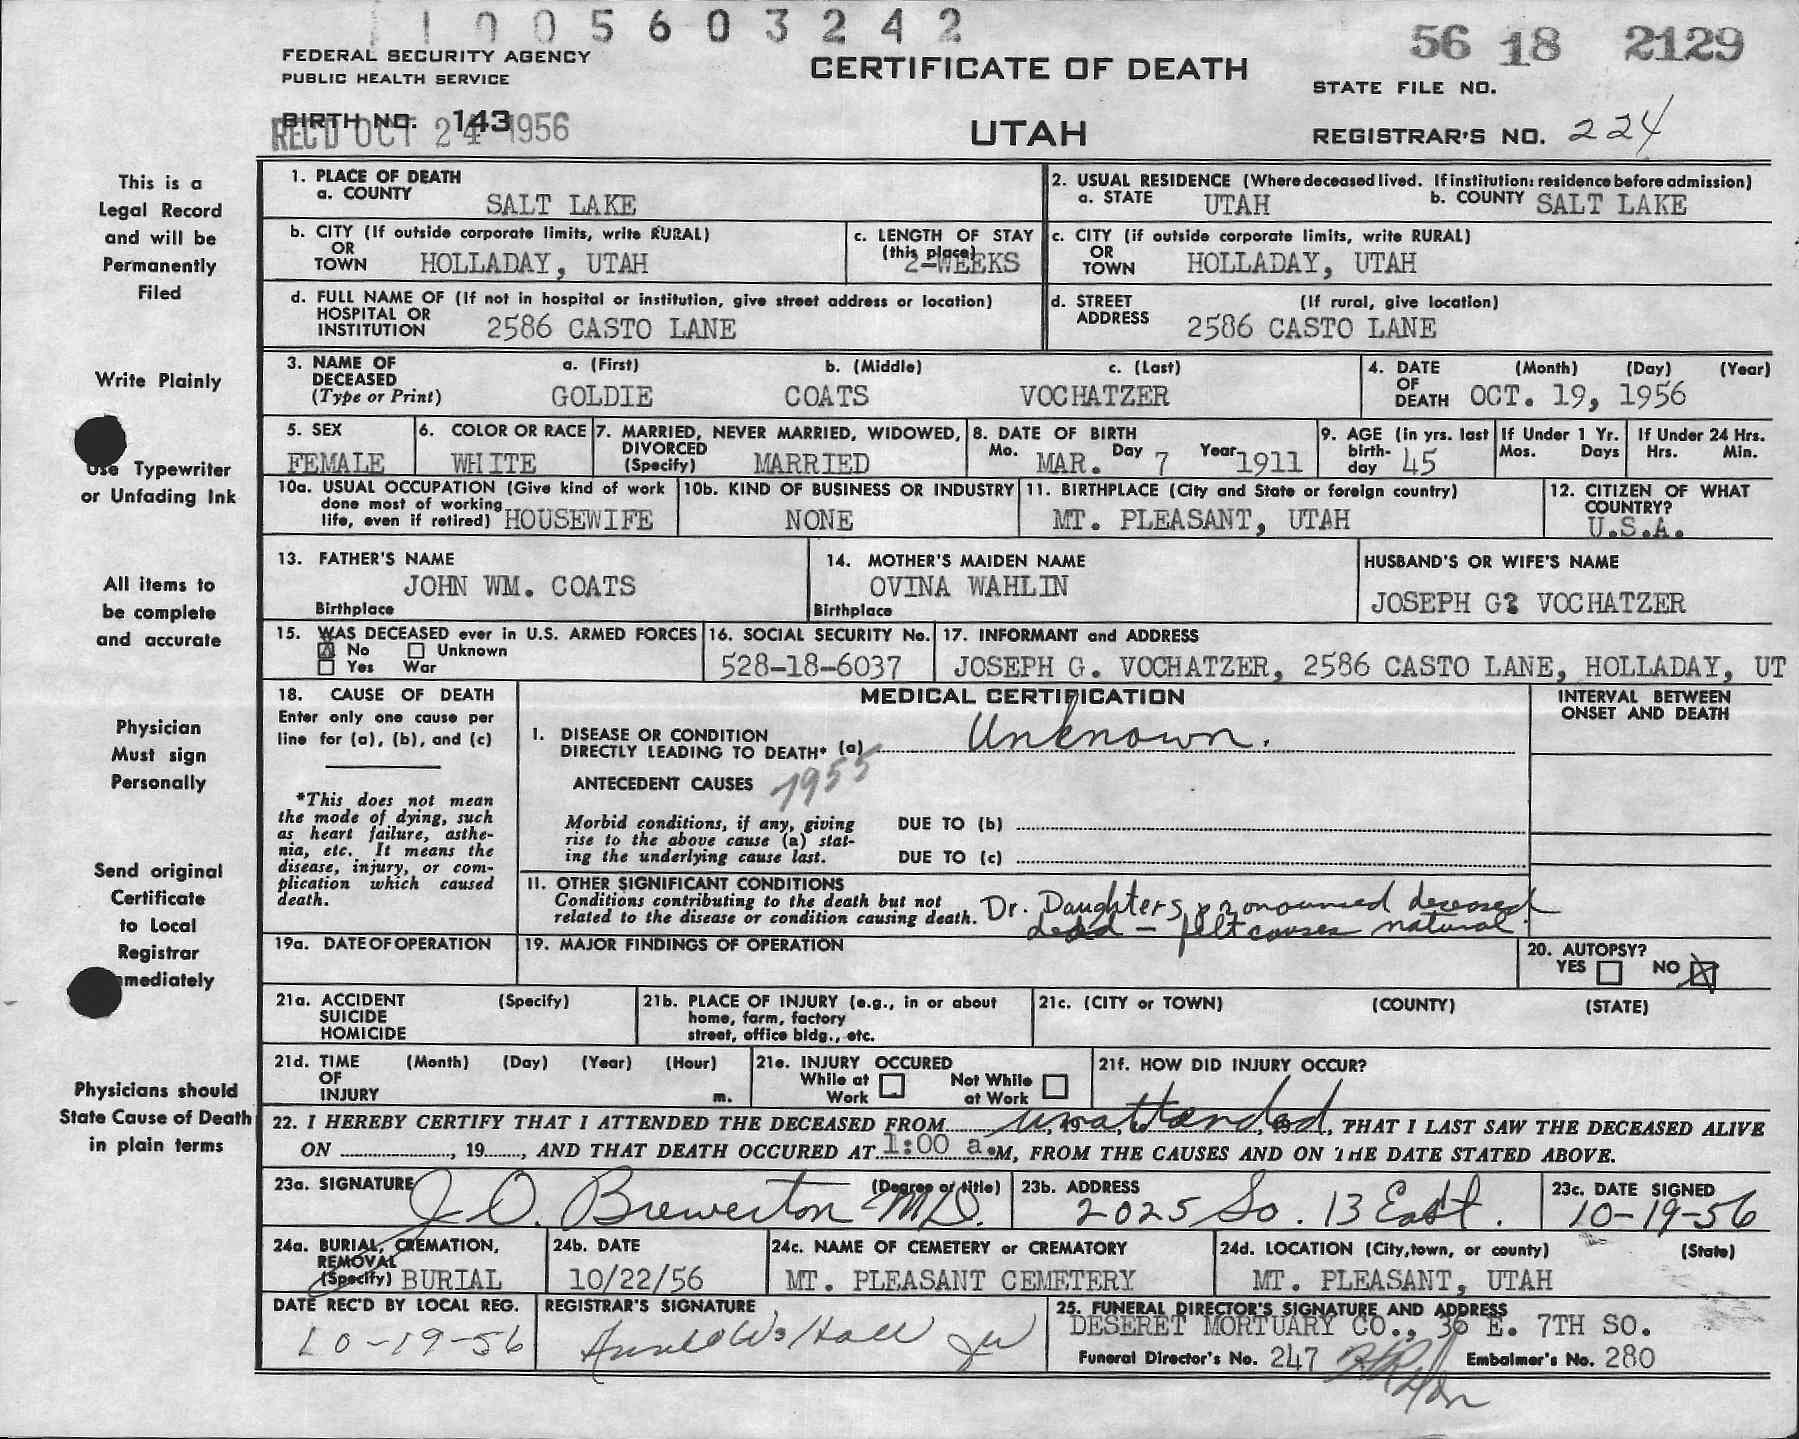 1005603242
56 18 2129
FEDERAL SECURITY AGENCY
PUBLIC HEALTH SERVICE
CERTIFICATE OF DEATH
STATE FILE NO.
BIRTH NO. 143
REC'D OCT 24 1956
UTAH
REGISTRAR'S NO. 224
This is a
Legal Record
and will be
Permanently
Filed
Write Plainly
Use Typewriter
or Unfading Ink
All items to
be complete
and accurate
Physician
Must sign
Personally
Send original
Certificate
to Local
Registrar
mmediately
Physicians should
State Cause of Death
in plain terms
1. PLACE OF DEATH
a. COUNTY SALT LAKE
2. USUAL RESIDENCE (Where deceased lived. If institution: residence before admission)
a. STATE UTAH b. COUNTY SALT LAKE
b. CITY (If outside corporate limits, write RURAL)
OR
TOWN HOLLADAY, UTAH
c. LENGTH OF STAY
(this place)
2-WEEKS
c. CITY (if outside corporate limits, write RURAL)
OR
TOWN HOLLADAY, UTAH
d. FULL NAME OF (If not in hospital or institution, give street address or location)
HOSPITAL OR
INSTITUTION 2586 CASTO LANE
d. STREET (If rural, give location)
ADDRESS 2586 CASTO LANE
3. NAME OF a. (First) b. (Middle) c. (Last)
DECEASED
(Type or Print) GOLDIE COATS VOCHATZER
4. DATE (Month) (Day) (Year)
OF
DEATH OCT. 19, 1956
5. SEX
FEMALE
6. COLOR OR RACE
WHITE
7. MARRIED, NEVER MARRIED, WIDOWED,
DIVORCED
(Specify) MARRIED
8. DATE OF BIRTH
Mo. MAR. Day 7 Year 1911
9. AGE (in yrs. last
birth-
day 45
If Under 1 Yr.
Mos. Days
If Under 24 Hrs.
Hrs. Min.
10a. USUAL OCCUPATION (Give kind of work
done most of working
life, even if retired) HOUSEWIFE
10b. KIND OF BUSINESS OR INDUSTRY
NONE
11. BIRTHPLACE (City and State or foreign country)
MT. PLEASANT, UTAH
12. CITIZEN OF WHAT
COUNTRY?
U.S.A.
13. FATHER'S NAME
JOHN WM. COATS
Birthplace
14. MOTHER'S MAIDEN NAME
OVINA WAHLIN
Birthplace
HUSBAND'S OR WIFE'S NAME
JOSEPH G? VOCHATZER
15. WAS DECEASED ever in U.S. ARMED FORCES
No Unknown
Yes War
16. SOCIAL SECURITY No.
528-18-6037
17. INFORMANT and ADDRESS
JOSEPH G. VOCHATZER, 2586 CASTO LANE, HOLLADAY, UT
18. CAUSE OF DEATH
Enter only one cause per
line for (a), (b), and (c)
*This does not mean
the mode of dying, such
as heart failure, asthe-
nia, etc. It means the
disease, injury, or com-
plication which caused
death.
MEDICAL CERTIFICATION
INTERVAL BETWEEN
ONSET AND DEATH
I. DISEASE OR CONDITION
DIRECTLY LEADING TO DEATH* (a) Unknown.
ANTECEDENT CAUSES 1955
Morbid conditions, if any, giving
rise to the above cause (a) stat-
ing the underlying cause last.
DUE TO (b)
DUE TO (c)
II. OTHER SIGNIFICANT CONDITIONS
Conditions contributing to the death but not
related to the disease or condition causing death.
Dr. Daughters pronounced deceased
dead - felt causes natural.
19a. DATE OF OPERATION
19. MAJOR FINDINGS OF OPERATION
20. AUTOPSY?
YES NO X
21a. ACCIDENT (Specify)
SUICIDE
HOMICIDE
21b. PLACE OF INJURY (e.g., in or about
home, farm, factory
street, office bldg., etc.
21c. (CITY or TOWN) (COUNTY) (STATE)
21d. TIME (Month) (Day) (Year) (Hour)
OF
INJURY m.
21e. INJURY OCCURED
While at Work
Not While at Work
21f. HOW DID INJURY OCCUR?
22. I HEREBY CERTIFY THAT I ATTENDED THE DECEASED FROM unattended, THAT I LAST SAW THE DECEASED ALIVE
ON ..., 19..., AND THAT DEATH OCCURED AT 1:00 a.M, FROM THE CAUSES AND ON THE DATE STATED ABOVE.
23a. SIGNATURE (Degree or title)
J. O. Brewerton M.D.
23b. ADDRESS
2025 So. 13 East.
23c. DATE SIGNED
10-19-56
24a. BURIAL, CREMATION,
REMOVAL
(Specify) BURIAL
24b. DATE
10/22/56
24c. NAME OF CEMETERY or CREMATORY
MT. PLEASANT CEMETERY
24d. LOCATION (City, town, or county) (State)
MT. PLEASANT, UTAH
DATE REC'D BY LOCAL REG.
10-19-56
REGISTRAR'S SIGNATURE
25. FUNERAL DIRECTOR'S SIGNATURE AND ADDRESS
DESERET MORTUARY CO., 36 E. 7TH SO.
Funeral Director's No. 247 Embalmer's No. 280